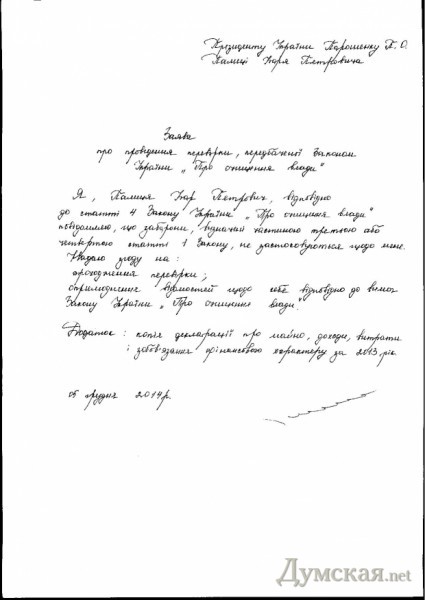 Президенту України Порошенку П.О.
Палиці Ігоря Петровича
Заява
про проведення перевірки, передбаченої Законом
України „Про очищення влади"
Я, Палиця Ігор Петрович, відповідно
до статті 4 Закону України „Про очищення влади"
повідомляю, що заборони, визначені частиною третьою або
четвертою статті 1 Закону, не застосовуються щодо мене.
Надаю згоду на:
проходження перевірки;
оприлюднення відомостей щодо себе відповідно до вимог
Закону України „Про очищення влади.
Додаток: копія декларації про майно, доходи, витрати
і зобов'язання фінансового характеру за 2013 рік.
05 грудня 2014р.
Думская.net